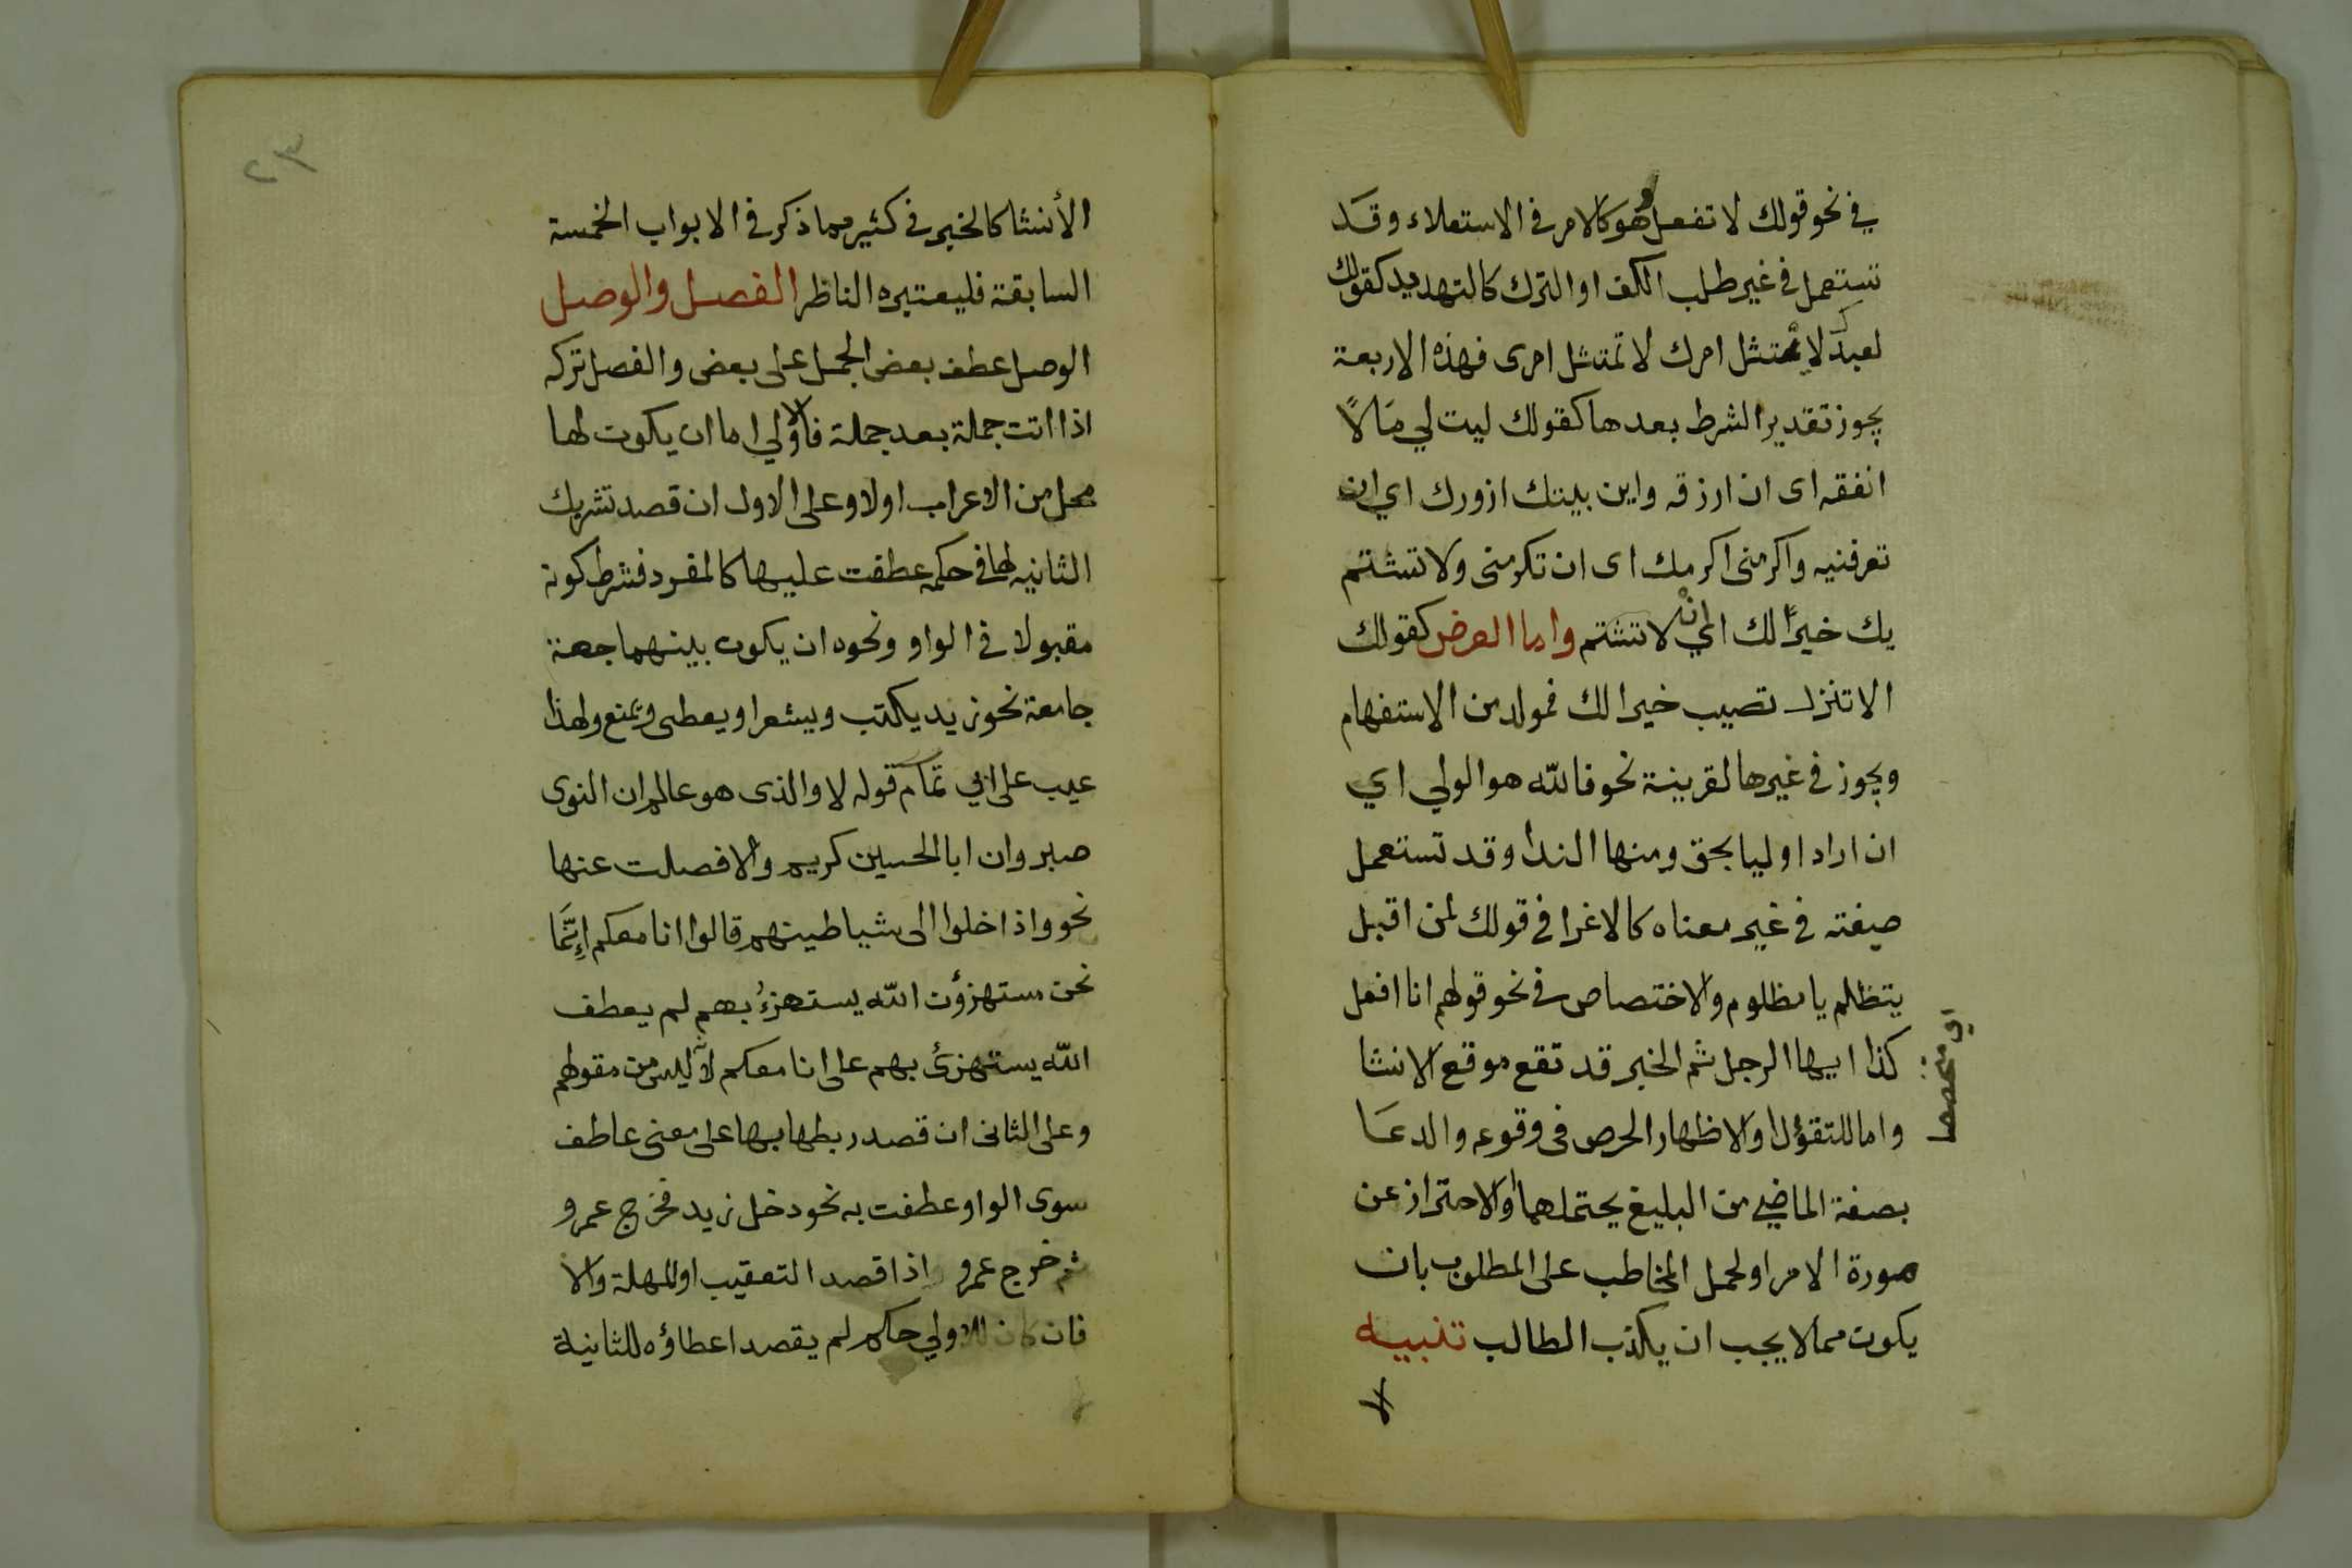 في نحو قولك لا تفعل وهو كالامر في الاستعلاء وقد
تستعمل في غير طلب الكف او الترك كالتهديد كقولك
لعبدك لا يمتثل امرك لا تمتثل امرى فهذه الاربعة
يجوز تقدير الشرط بعدها كقولك ليت لي مالًا
انفقه اى ان ارزقه واين بيتك ازورك اي ان
تعرفنيه واكرمنى اكرمك اى ان تكرمنى ولا تشتم
يك خيرًا لك اي ان لا تشتم واما العرض كقولك
الا تنزل تصيب خيرا لك فمولد من الاستفهام
ويجوز في غيرها لقرينة نحو فالله هو الولي اي
ان اراد اوليا بحق ومنها الندا وقد تستعمل
صيغته في غير معناه كالاغرا في قولك لمن اقبل
يتظلم يا مظلوم والاختصاص في نحو قولهم انا افعل
كذا ايها الرجل ثم الخبر قد تقع موقع الانشا
اي متخصصا
واما للتفؤل او لاظهار الحرص فى وقوعه والدعا
بصغة الماضي من البليغ يحتملهما او الاحتراز عن
صورة الامر او لحمل المخاطب على المطلوب بان
يكون ممالا يجب ان يكذب الطالب تنبيه
لا
٢٣
الأنشا كالخبر في كثير مما ذكر في الابواب الخمسة
السابقة فليعتبره الناظر الفصل والوصل
الوصل عطف بعض الجمل على بعض والفصل تركه
اذا اتت جملة بعد جملة فالاولي اما ان يكون لها
محل من الاعراب اولا وعلى الاول ان قصد تشريك
الثانيه لها في حكمه عطفت عليها كالمفرد فشرط كونه
مقبولا فى الواو ونحوه ان يكون بينهما جهة
جامعة نحو زيد يكتب ويشعر او يعطى ويمنع ولهذا
عيب على ابي تمام قوله لا والذى هو عالم ان النوى
صبر وان ابا الحسين كريم والا فصلت عنها
نحو واذا خلوا الى شياطينهم قالوا انا معكم إِنَّمَا
نحن مستهزؤن الله يستهزءُ بهم لم يعطف
الله يستهزئ بهم على انا معكم لانه ليس من مقولهم
وعلى الثانى ان قصد ربطها بها على معنى عاطف
سوى الواو عطفت به نحو دخل زيد فخرج عمرو
ثم خرج عمرو اذا قصد التعقيب او المهلة والا
فان كان للاولي حكم لم يقصد اعطاؤه للثانية